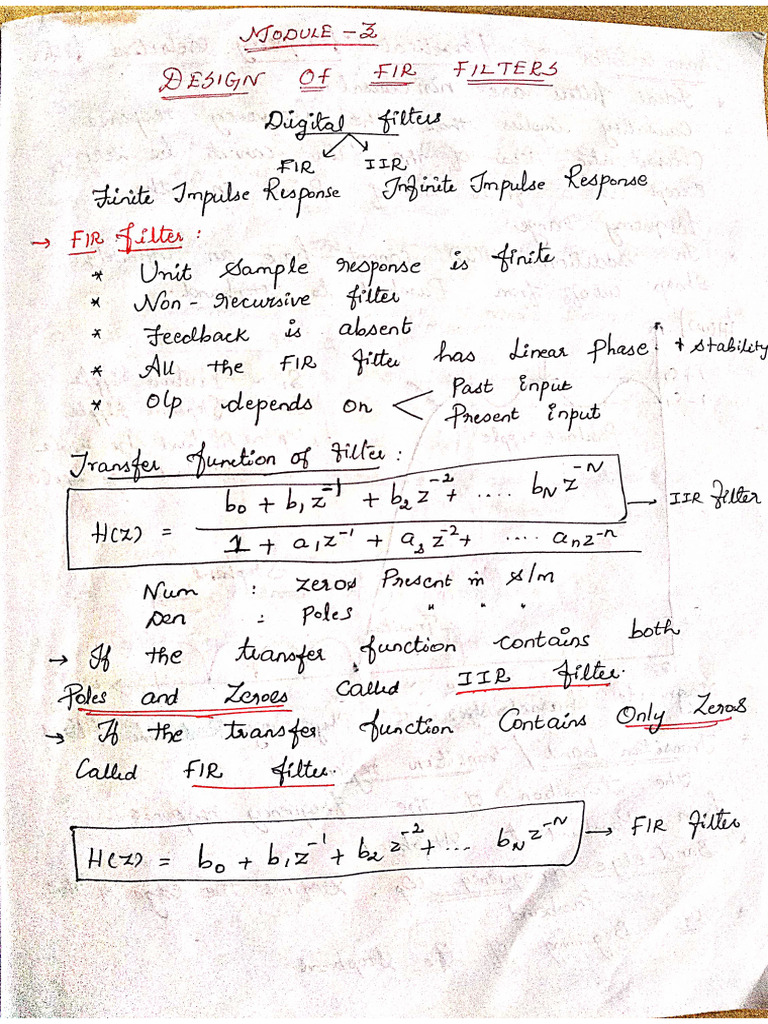 MODULE - 3
DESIGN OF FIR FILTERS
Digital filters
FIR IIR
Finite Impulse Response Infinite Impulse Response
→ FIR filter :
* Unit sample response is finite
* Non - recursive filter
* Feedback is absent
* All the FIR filter has linear phase + stability
* O/p depends on < Past input
Present input
Transfer function of filter :
H(z) = b₀ + b₁z⁻¹ + b₂z⁻² + .... b_N z^-N / 1 + a₁z⁻¹ + a₂z⁻² + .... aₙz⁻ⁿ → IIR filter
Num : Zeros Present in s/m
Den : Poles " " "
→ If the transfer function contains both
Poles and Zeroes Called IIR filter.
→ If the transfer function Contains Only Zeros
Called FIR filter.
H(z) = b₀ + b₁z⁻¹ + b₂z⁻² + ... b_N z^-N → FIR filter